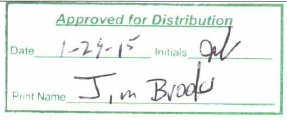 Approved for Distribution
Date 1-29-15 Initials
Print Name Jim Brooks